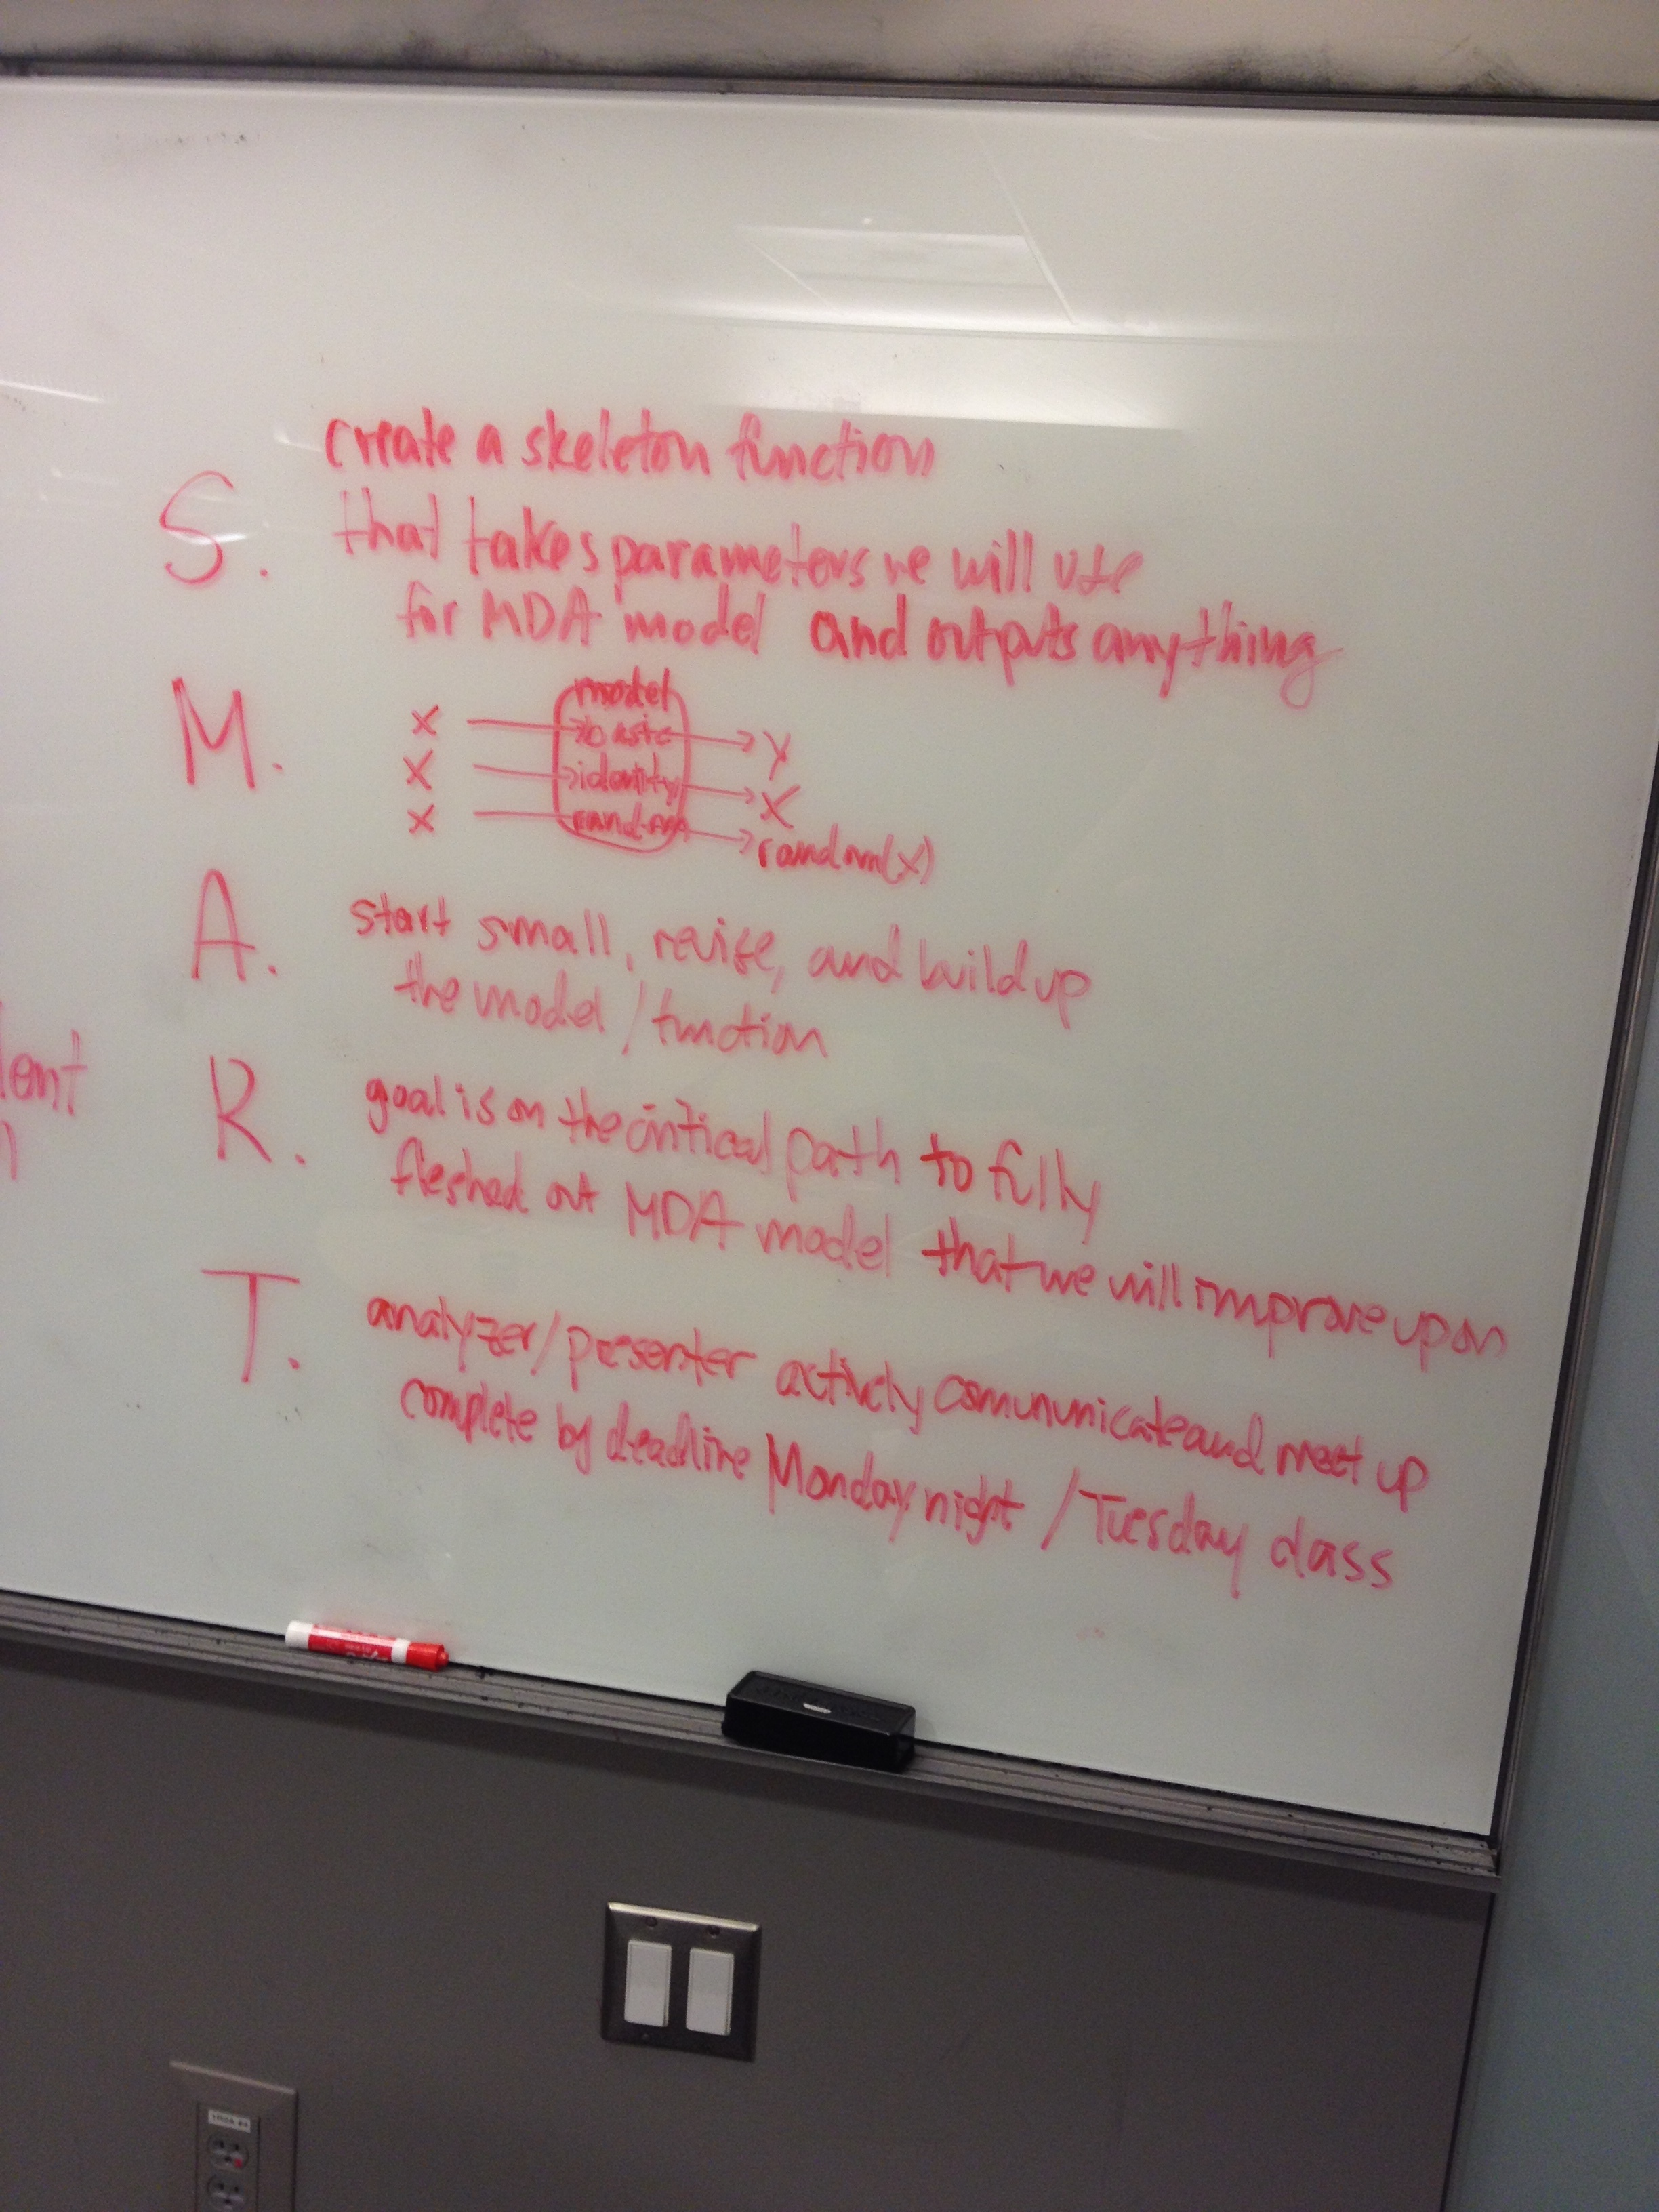 create a skeleton function
S. that takes parameters we will use
for MDA model and outputs anything
M.
model
x → basic → y
x → identity → x
x → random → random(x)
A. start small, revise, and build up
the model / function
lent
R. goal is on the critical path to fully
fleshed out MDA model that we will improve upon
T. analyzer/presenter actively communicate and meet up
complete by deadline Monday night / Tuesday class